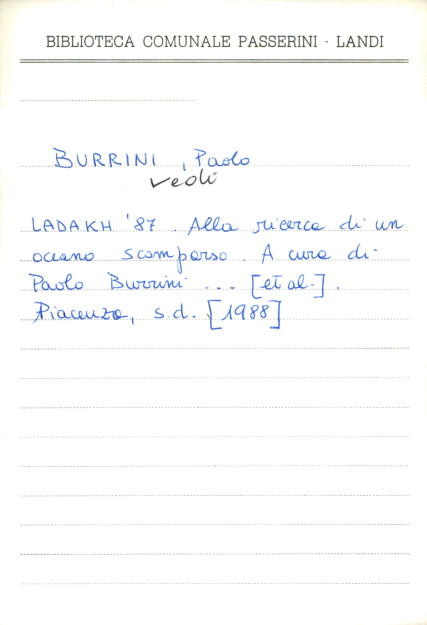 BIBLIOTECA COMUNALE PASSERINI - LANDI
BURRINI, Paolo
vedi
LADAKH '87. Alla ricerca di un
oceano scomparso. A cura di
Paolo Burrini ... [et al.].
Piacenza, s.d. [1988]